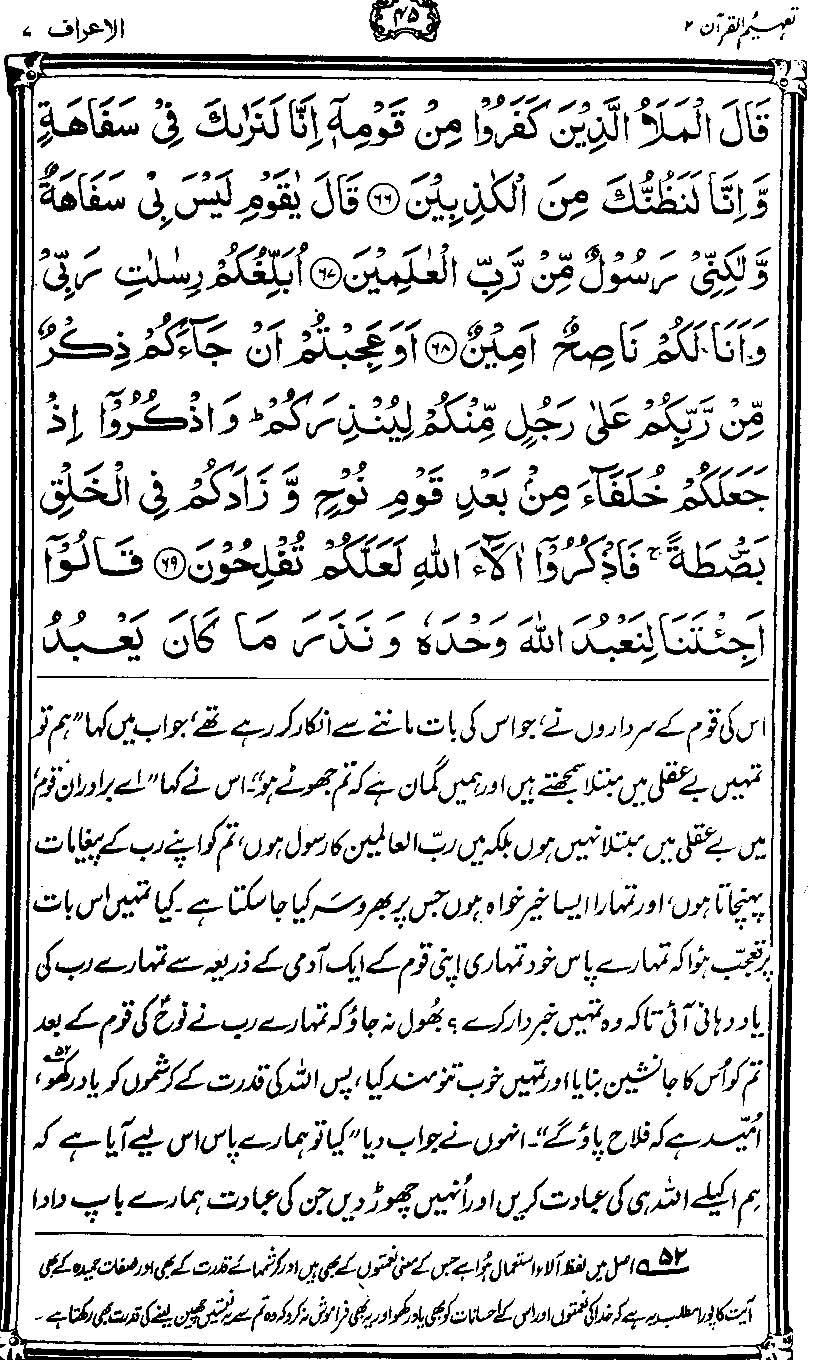 تفہیم القرآن ۲
۴۵
الاعراف ۷
قَالَ الْمَلَاُ الَّذِيْنَ كَفَرُوْا مِنْ قَوْمِهٖٓ اِنَّا لَنَرٰىكَ فِيْ سَفَاهَةٍ
وَّاِنَّا لَنَظُنُّكَ مِنَ الْكٰذِبِيْنَ ۶۶ قَالَ يٰقَوْمِ لَيْسَ بِيْ سَفَاهَةٌ
وَّلٰكِنِّيْ رَسُوْلٌ مِّنْ رَّبِّ الْعٰلَمِيْنَ ۶۷ اُبَلِّغُكُمْ رِسٰلٰتِ رَبِّيْ
وَاَنَا لَكُمْ نَاصِحٌ اَمِيْنٌ ۶۸ اَوَعَجِبْتُمْ اَنْ جَآءَكُمْ ذِكْرٌ
مِّنْ رَّبِّكُمْ عَلٰى رَجُلٍ مِّنْكُمْ لِيُنْذِرَكُمْ ؕ وَاذْكُرُوْٓا اِذْ
جَعَلَكُمْ خُلَفَآءَ مِنْۢ بَعْدِ قَوْمِ نُوْحٍ وَّزَادَكُمْ فِي الْخَلْقِ
بَصْۜطَةً ۚ فَاذْكُرُوْٓا اٰلَآءَ اللّٰهِ لَعَلَّكُمْ تُفْلِحُوْنَ ۶۹ قَالُوْٓا
اَجِئْتَنَا لِنَعْبُدَ اللّٰهَ وَحْدَهٗ وَنَذَرَ مَا كَانَ يَعْبُدُ
اس کی قوم کے سرداروں نے، جو اس کی بات ماننے سے انکار کر رہے تھے، جواب میں کہا ”ہم تو
تمہیں بے عقلی میں مبتلا سمجھتے ہیں اور ہمیں گمان ہے کہ تم جھوٹے ہو“۔ اس نے کہا ”اے برادرانِ قوم،
میں بے عقلی میں مبتلا نہیں ہوں بلکہ میں ربّ العالمین کا رسول ہوں، تم کو اپنے رب کے پیغامات
پہنچاتا ہوں، اور تمہارا ایسا خیر خواہ ہوں جس پر بھروسہ کیا جا سکتا ہے۔ کیا تمہیں اس بات
پر تعجب ہوا کہ تمہارے پاس خود تمہاری اپنی قوم کے ایک آدمی کے ذریعہ سے تمہارے رب کی
یاد دہانی آئی تاکہ وہ تمہیں خبردار کرے؟ بھول نہ جاؤ کہ تمہارے رب نے نوحؑ کی قوم کے بعد
تم کو اُس کا جانشین بنایا اور تمہیں خوب تنومند کیا، پس اللہ کی قدرت کے کرشموں کو یاد رکھو۵۲،
اُمّید ہے کہ فلاح پاؤ گے“۔ انہوں نے جواب دیا ”کیا تو ہمارے پاس اس لیے آیا ہے کہ
ہم اکیلے اللہ ہی کی عبادت کریں اور اُنہیں چھوڑ دیں جن کی عبادت ہمارے باپ دادا
۵۲ اصل میں لفظ آلاء استعمال ہوا ہے جس کے معنی نعمتوں کے بھی ہیں اور کرشمہائے قدرت کے بھی اور صفات حمیدہ کے بھی
آیت کا پورا مطلب یہ ہے کہ خدا کی نعمتوں اور اس کے احسانات کو بھی یاد رکھو اور یہ بھی فراموش نہ کرو کہ وہ تم سے یہ نعمتیں چھین لینے کی قدرت بھی رکھتا ہے۔